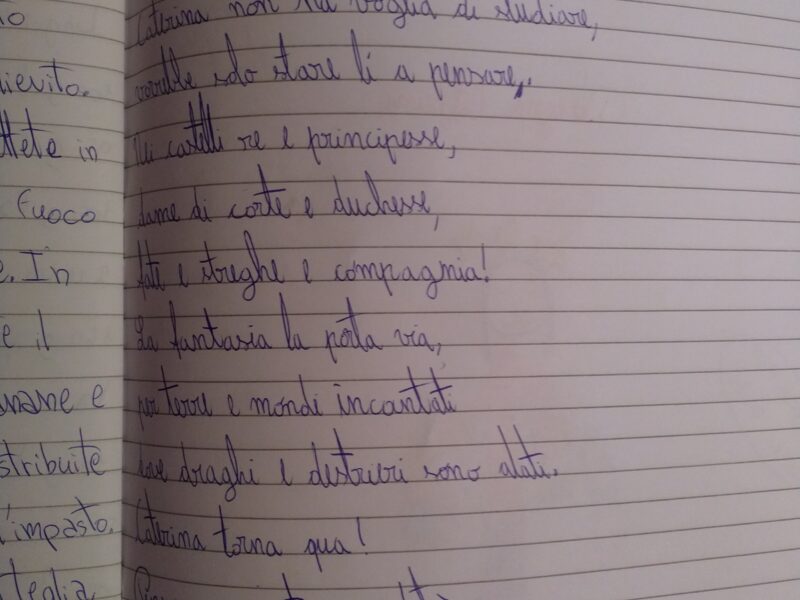 no
lievito.
ttete in
fuoco
e. In
e il
mame e
stribuite
l'impasto.
teglia
Caterina non ha voglia di studiare,
vorrebbe solo stare lì a pensare,
dame di corte e duchesse,
fate e streghe e compagnia!
La fantasia la porta via,
per terre e mondi incantati
dove draghi e destrieri sono alati.
Caterina torna qua!